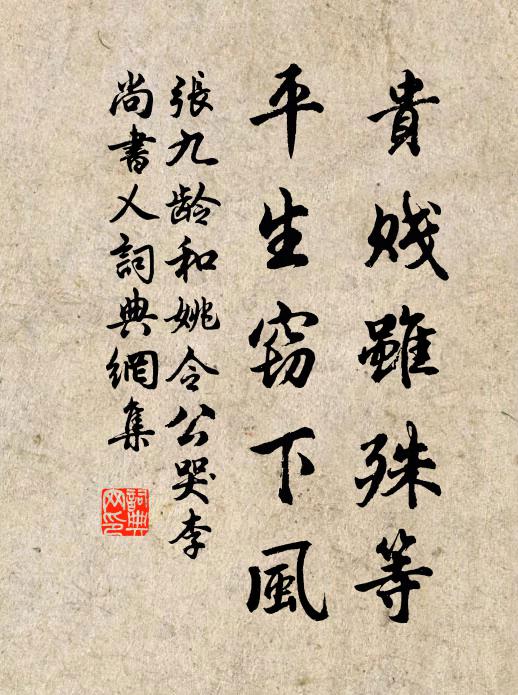 貴賤雖殊等
平生窃下風
張九龄和姚令公哭李
尚書乂詞典網集
詞典网印